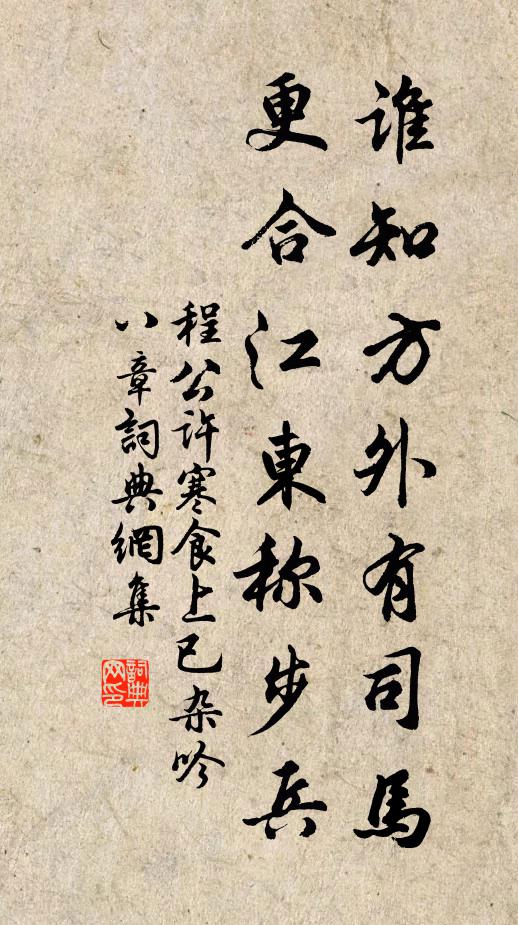 誰知方外有司馬
更合江東称步兵
程公许寒食上巳杂吟
八章詞典網集
詞典
网印